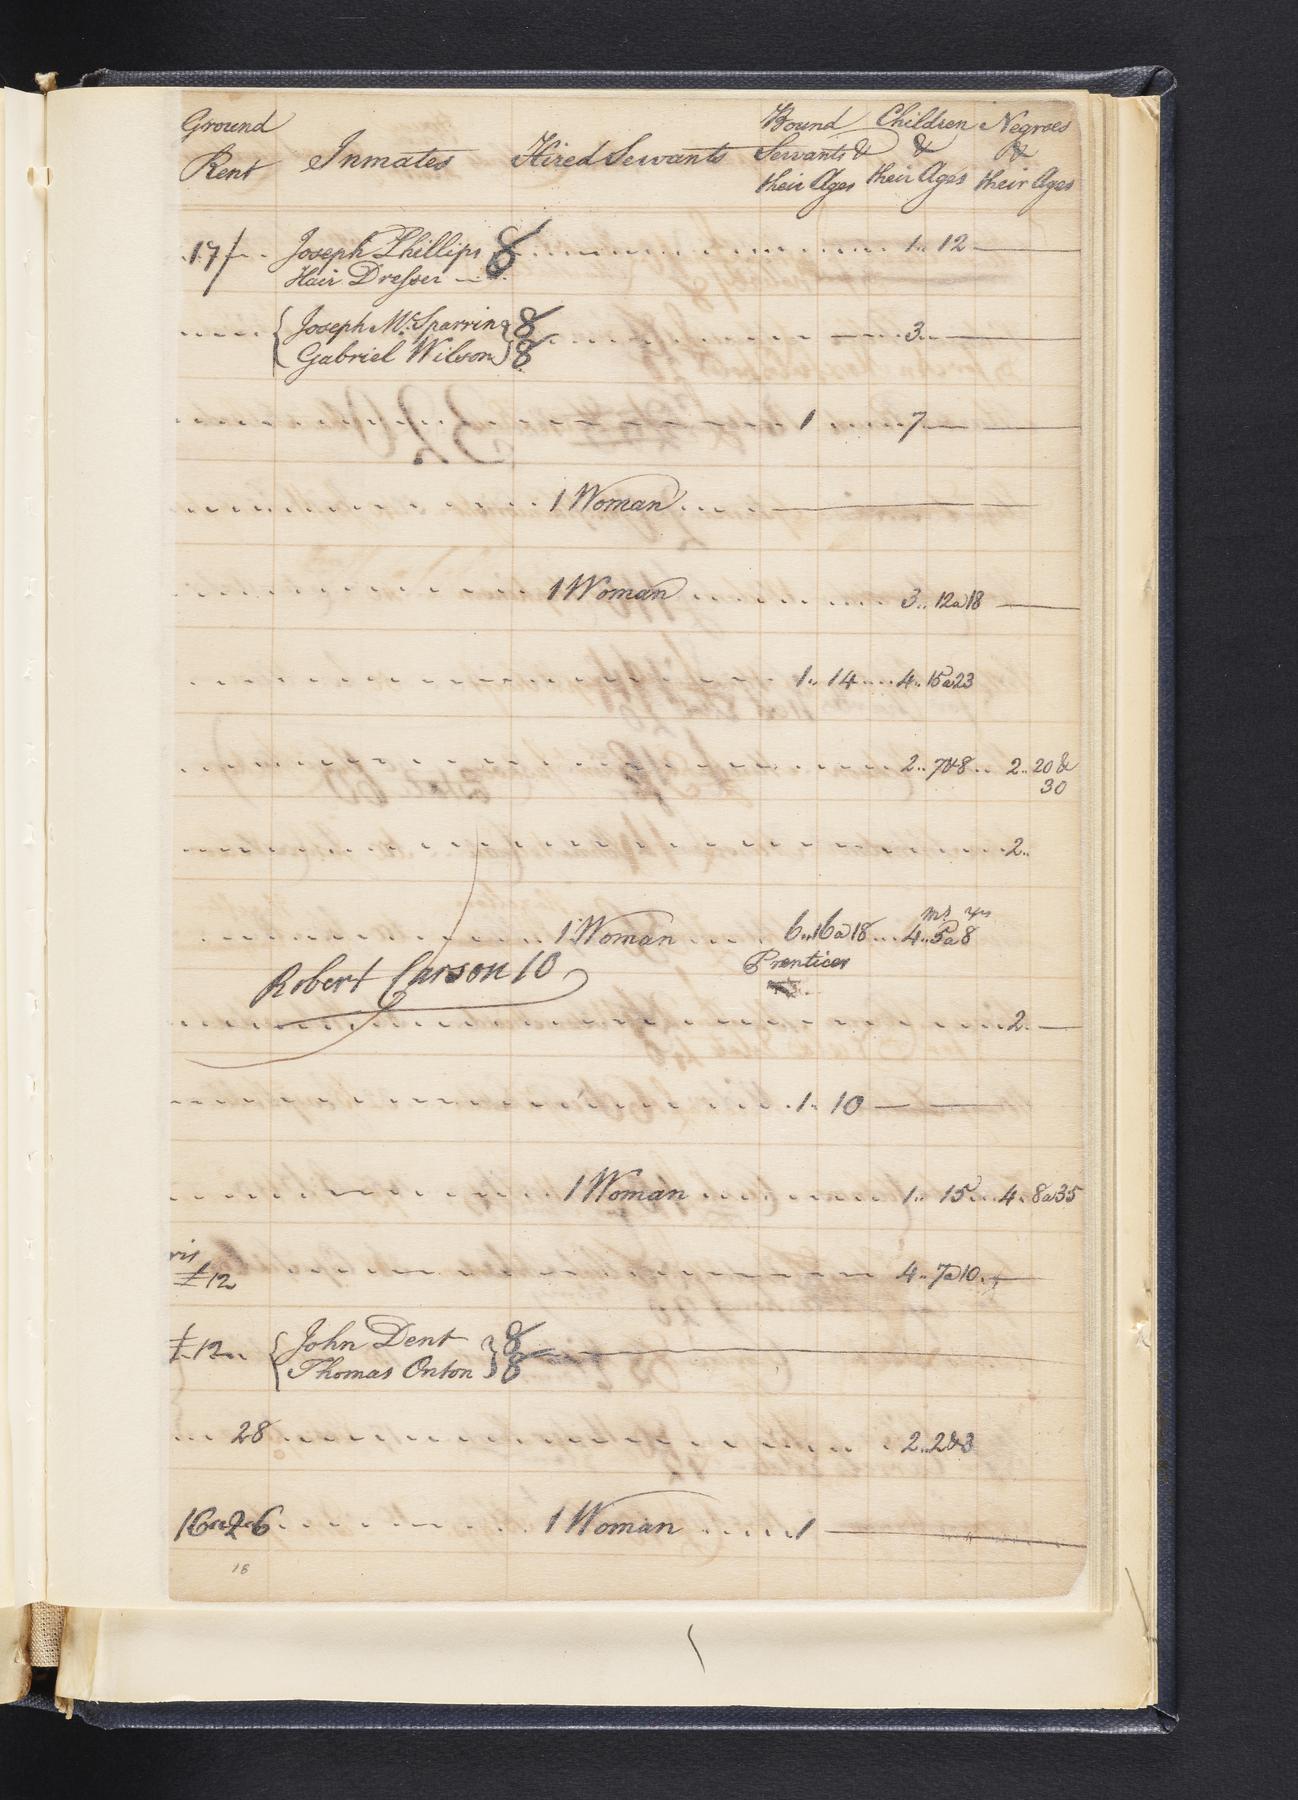 Ground Rent Inmates Hired Servants Bound Servants & their Ages Children & their Ages Negroes & their Ages
17/ Joseph Phillips 8 1.. 12
Hair Dresser
Joseph McSparring 8 3..
Gabriel Wilson 8
1 7
1 Woman
1 Woman 3.. 12 a 18
1.. 14 4.. 15 a 23
2.. 7 & 8 2.. 20 &
30
2..
ms yrs
1 Woman 6.. 16 a 18 4.. 5 a 8
Prentices
Robert Carson 10
2
1.. 10
1 Woman 1.. 15 4.. 8 a 35
£12 4.. 7 a 10
£12 John Dent 8
Thomas Orton 8
28 2.. 2 & 3
1 Woman 1
18